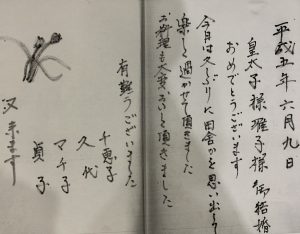 平成五年六月九日
皇太子様雅子様御結婚
おめでとうございます
今日は久しぶりに田舎かを思い出して
楽しく過かせて頂きました
お料理も大変おいしく頂きました
有難うございました
千恵子
久代
マチ子
貞子
又来ます